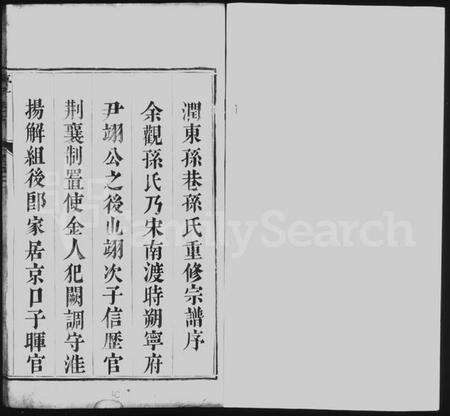 潤東孫巷孫氏重修宗譜序
余觀孫氏乃宋南渡時朔寧府
尹翊公之後也翊次子信歷官
荆襄制置使金人犯闕調守淮
揚解組後卽家居京口子暉官
FamilySearch